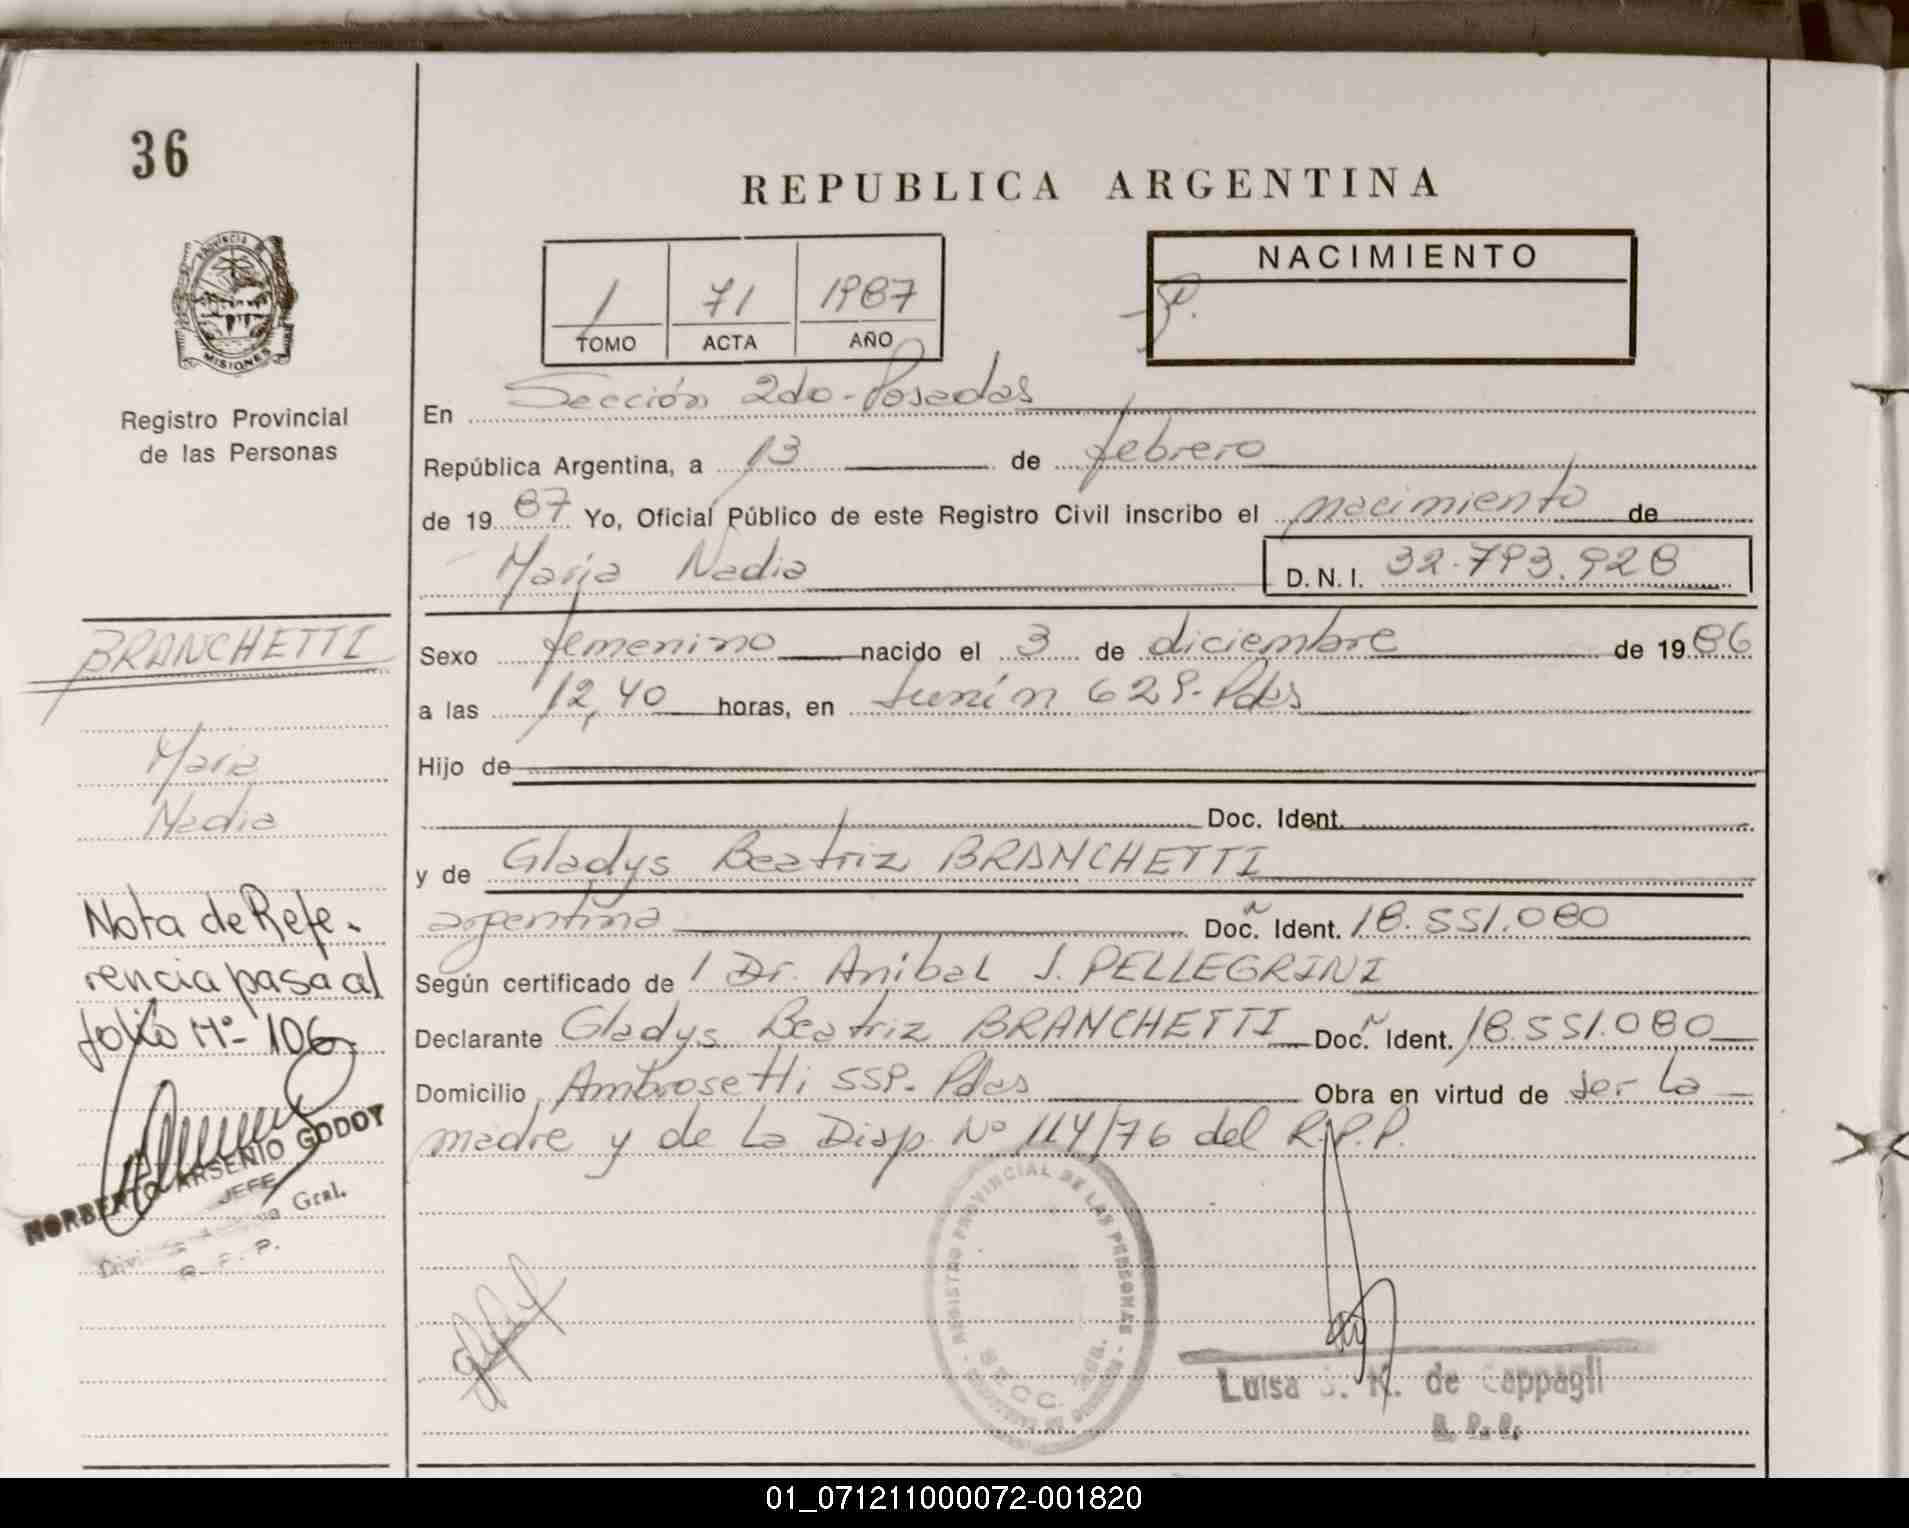 36
REPUBLICA ARGENTINA
PROVINCIA DE
MISIONES
Registro Provincial
de las Personas
1 71 1987
TOMO ACTA AÑO
NACIMIENTO
En Sección 2do-Posadas
República Argentina, a 13 de febrero
de 1987 Yo, Oficial Público de este Registro Civil inscribo el nacimiento de
María Nadia D.N.I. 32.793.928
Sexo femenino nacido el 3 de diciembre de 1986
a las 12,40 horas, en Junín 629-Pdas
Hijo de
Doc. Ident.
y de Gladys Beatriz BRANCHETTI
argentina Doc. Ident. 18.551.080
Según certificado de 1 Dr. Aníbal J. PELLEGRINI
Declarante Gladys Beatriz BRANCHETTI Doc. Ident. 18.551.080
Domicilio Ambrosetti 559-Pdas Obra en virtud de ser la
madre y de la Disp. Nº 114/76 del R.P.P.
BRANCHETTI
María
Nadia
Nota de Refe-
rencia pasa al
folio Nº- 106
NORBERTO ARSENIO GODOY
JEFE
Gral.
R. P. P.
REGISTRO PROVINCIAL DE LAS PERSONAS
SECC.
Luisa S. K. de Cappagli
R. P. P.
01_071211000072-001820